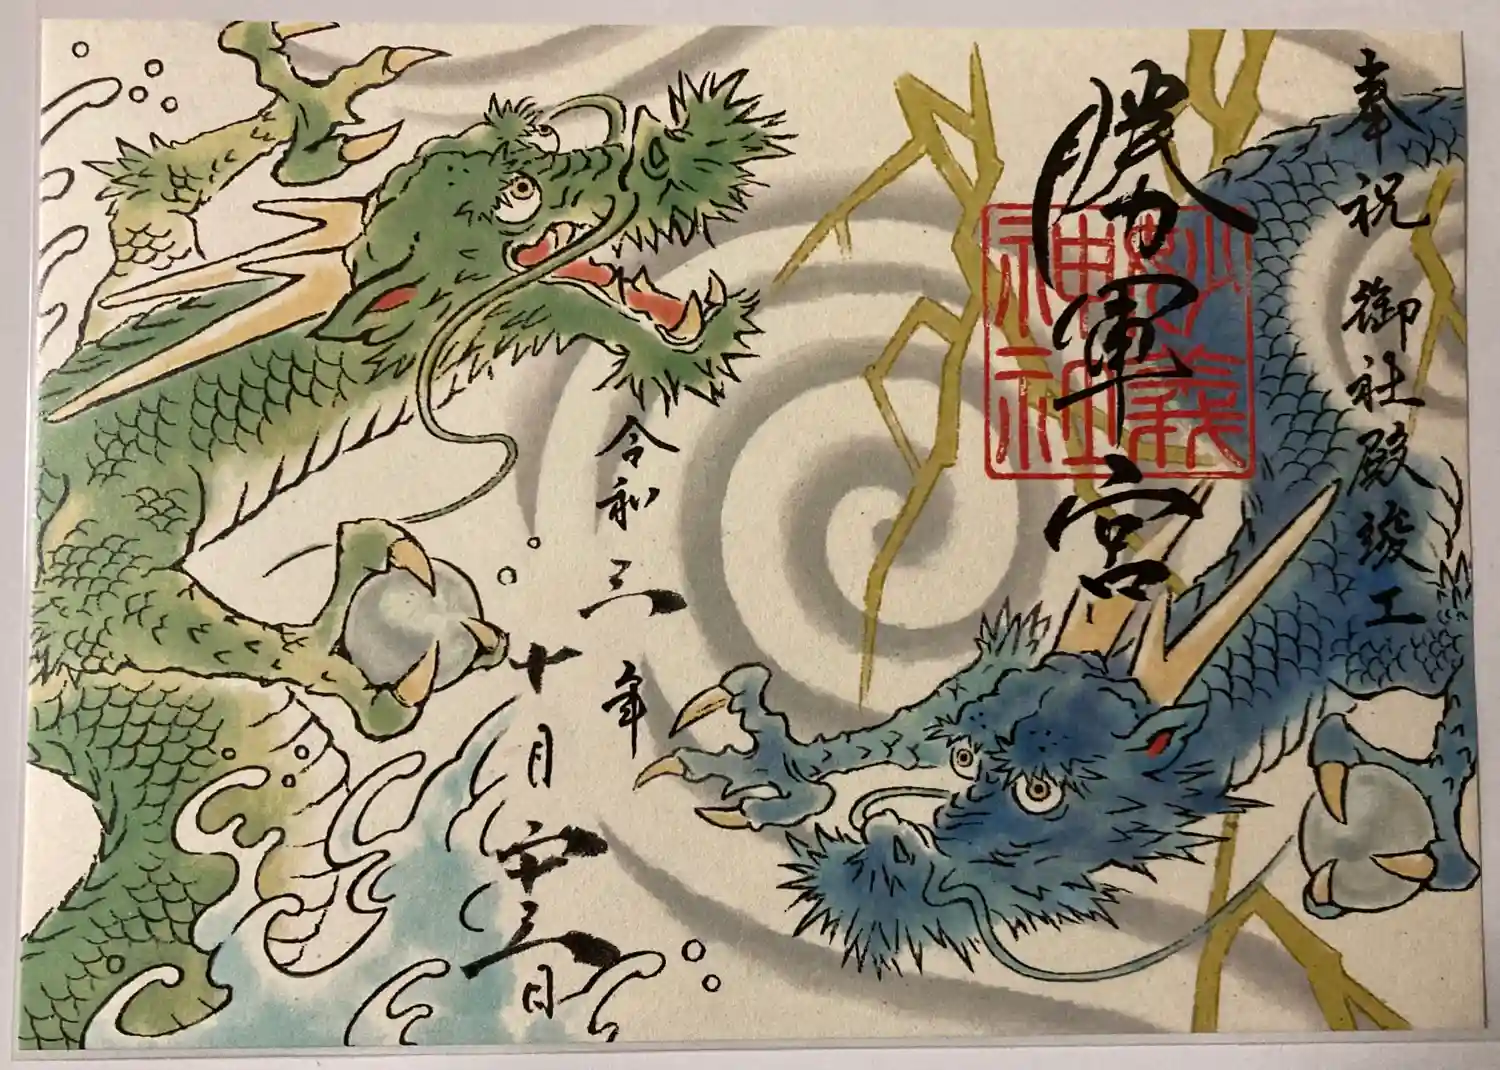 奉祝 御社殿竣工
勝軍宮
妙義
神社
令和三年
十月廿三日